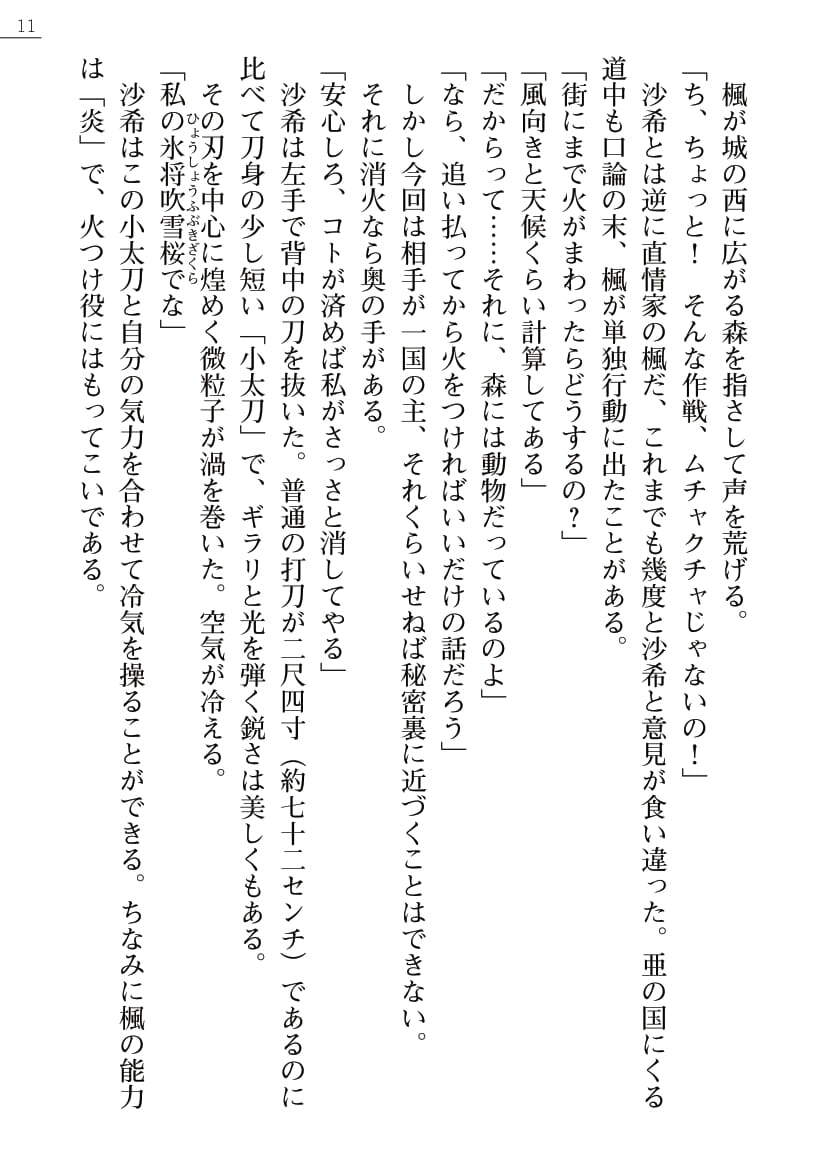 11
楓が城の西に広がる森を指さして声を荒げる。
「ち、ちょっと！　そんな作戦、ムチャクチャじゃないの！」
沙希とは逆に直情家の楓だ、これまでも幾度と沙希と意見が食い違った。亜の国にくる
道中も口論の末、楓が単独行動に出たことがある。
「街にまで火がまわったらどうするの？」
「風向きと天候くらい計算してある」
「だからって……それに、森には動物だっているのよ」
「なら、追い払ってから火をつければいいだけの話だろう」
しかし今回は相手が一国の主、それくらいせねば秘密裏に近づくことはできない。
それに消火なら奥の手がある。
「安心しろ、コトが済めば私がさっさと消してやる」
沙希は左手で背中の刀を抜いた。普通の打刀が二尺四寸（約七十二センチ）であるのに
比べて刀身の少し短い「小太刀」で、ギラリと光を弾く鋭さは美しくもある。
その刃を中心に煌めく微粒子が渦を巻いた。空気が冷える。
「私の氷将吹雪桜でな」
ひょうしょうふぶきざくら
沙希はこの小太刀と自分の気力を合わせて冷気を操ることができる。ちなみに楓の能力
は「炎」で、火つけ役にはもってこいである。